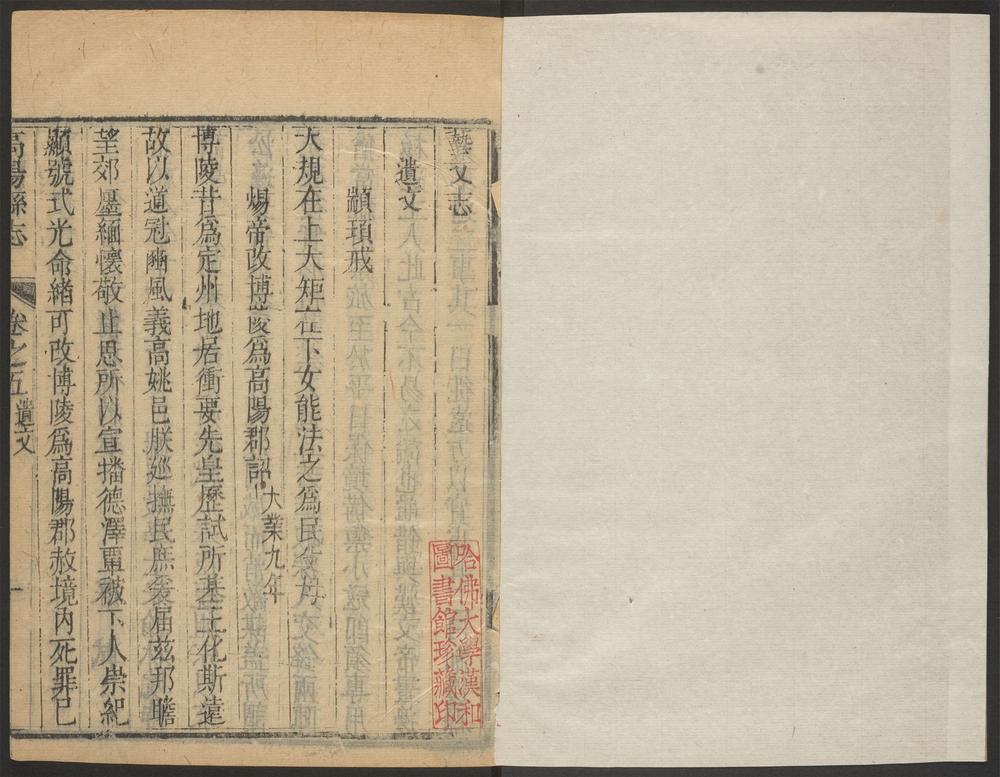 藝文志
遺文
顓頊戒
大規在上大矩在下女能法之爲民父母
煬帝改博陵爲高陽郡詔大業九年
博陵昔爲定州地居衝要先皇歷試所基王化斯遠
故以道冠豳風義高姚邑朕巡撫民庶爰屆茲邦瞻
望郊廛緬懷敬止思所以宣播德澤覃被下人崇紀
顯號式光命緒可改博陵爲高陽郡赦境內死罪已
高陽縣志
卷之五遺文
一
哈佛大學漢和
圖書館珍藏印